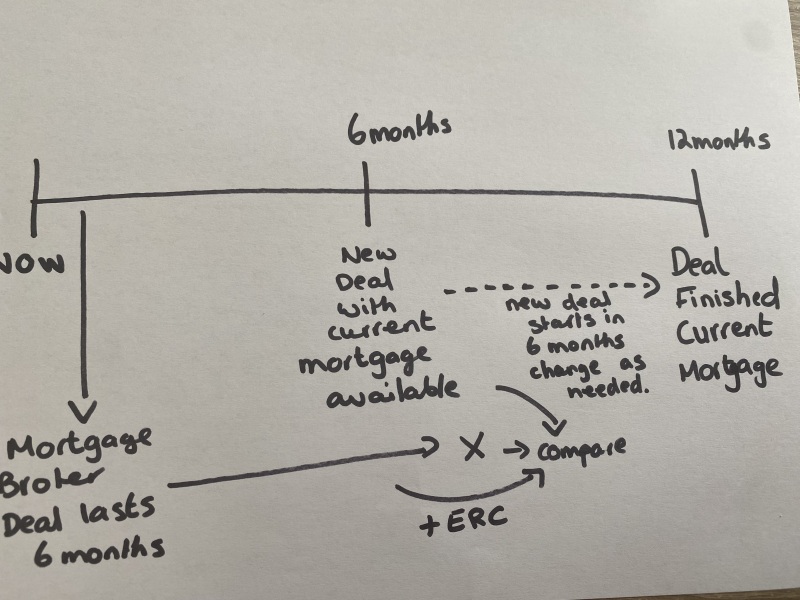 6months
12months
NOW
New
Deal
with
current
mortgage
available
new deal
starts in
6 months
change as
needed.
Deal
Finished
Current
Mortgage
Mortgage
Broker
Deal lasts
6 months
X
compare
+ ERC